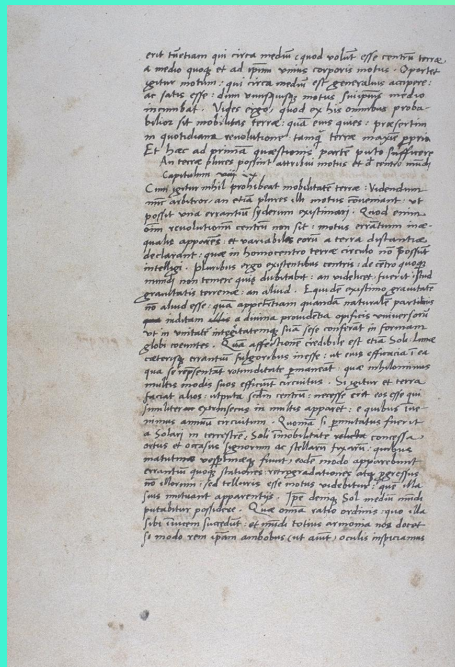 erit tū etiam qui circa mediū: quod volūt esse centrū terrae
a medio quoq et ad ipsum unius corporis motus. Oportet
igitur motum: qui circa mediū est generalius accipere:
ac satis esse: dum unusquisq motus suijpsius medio
incumbat. Vides ergo quod ex his omnibus proba
bilior sit mobilitas terrae: quam eius quies: praesertim
in quotidiana revolutione tanq terrae maxime propria
Et haec ad primā quaestionis partē puto sufficere
An terrae plures possint attribui motus et d centro mūdi
Capitulum
Cum igitur nihil prohibeat mobilitatē terrae: Videndum
nunc arbitror: an etiā plures illi motus conveniant: ut
possit una errantiū syderum existimari. Quod enim
omniū revolutionū centrū non sit: motus errātium inae
qualis apparēs: et variabiles eorū a terra distantiae
declarant: quae in homocentro terrae circulo nō possūt
intelligi. Pluribus ergo existentibus centris: de cētro quoq
mundi non temere quis dubitabit: an videlicet fuerit istud
gravitatis terrenae: an aliud. Equidē existimo gravitatē
nō aliud esse: quā appetētiam quandā naturalē partibus
inditam a divina providētia opificis universorū
ut in unitatē integritatemq suā sese conferāt in formam
globi coeuntes. Quā affectionē credibile est etiā Soli: Lunae
caeterisq errantiū fulgoribus inesse: ut eius efficacia i ea
qua se repraesentāt rotunditate pmaneāt: quae nihilominus
multis modis suos efficiūt circuitus. Si igitur et terra
faciat alios: utputa sedm centrū: necesse erit eos esse qui
similiter extrinsecus in multis apparēt: e quibus inve
nimus annuū circuitum. Quoniā si pmutatus fuerit
a Solari in terrestrē, Soli īmobilitate concessa
ortus et occasus signorum ac stellarū fixarū: quibus
matutinae vespertinaeq fiunt, eodē modo apparebunt
errantiū quoq stationes retrogradationes atq progressus
nō illorum: sed telluris esse motus videbitur: quē illa
suis mutuant apparentijs. Ipse deniq Sol mediū mūdi
putabitur possidere. Quae omnia ratio ordinis: quo illa
sibi invicem succedūt: et mūdi totius armonia nos docet
si modo rem ipam ambobus (ut aiūt) oculis inspiciamus